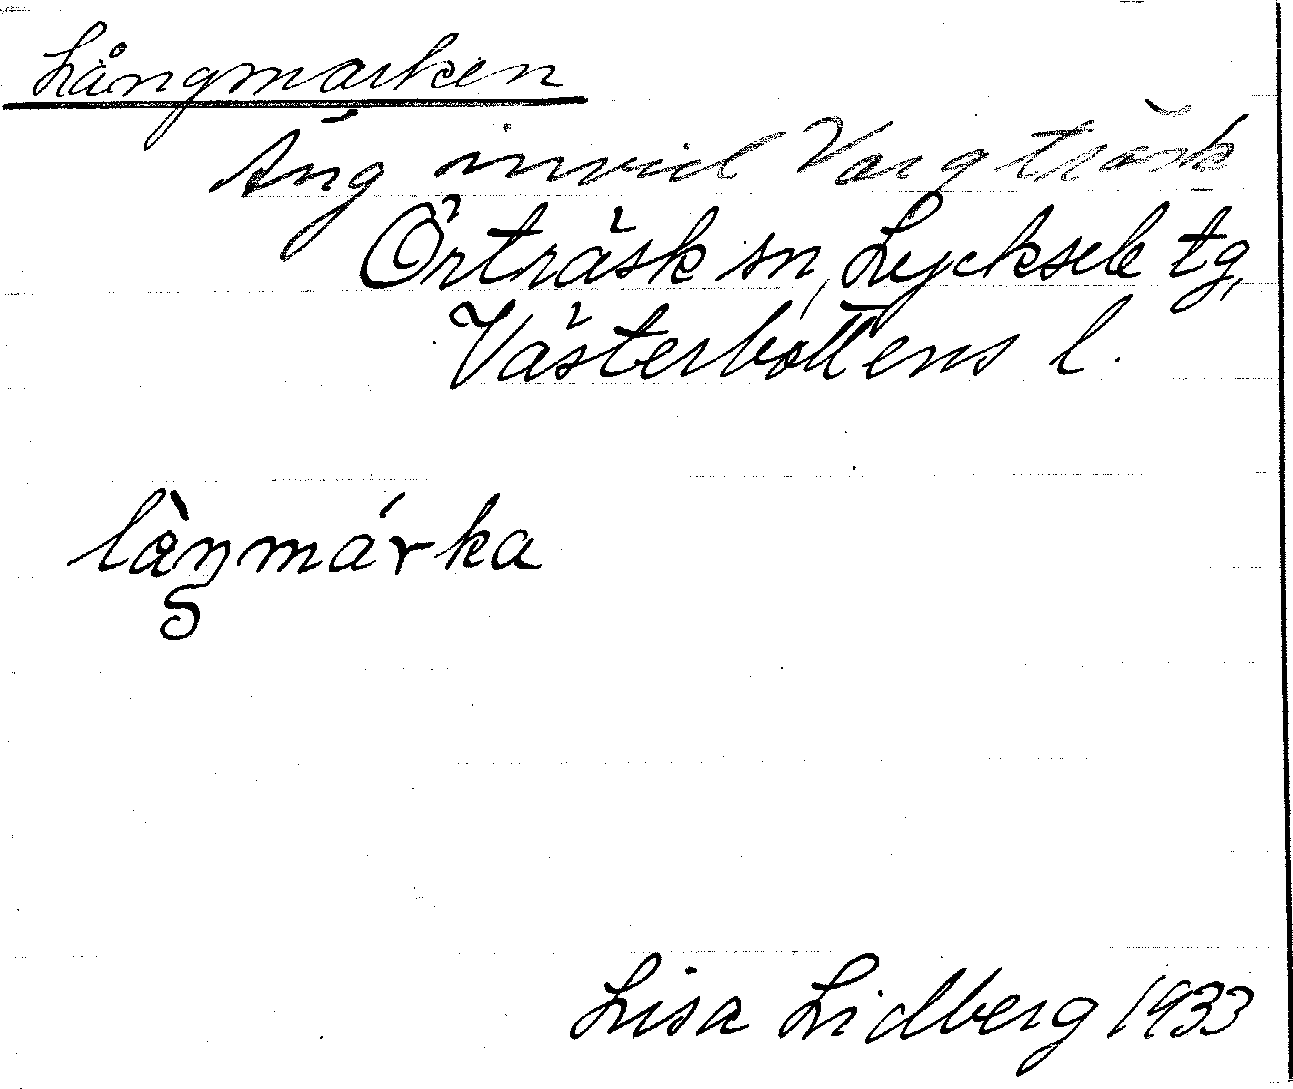 Långmarken
Äng invid Vargträsk
Örträsk sn, Lycksele tg,
Västerbottens l.
lå̀ŋmárka
Lisa Lidberg 1933